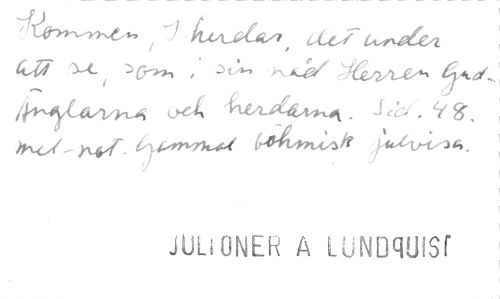 Kommen, I herdar, det under
att se, som i sin nåd Herren Gud-
Änglarna och herdarna. Sid. 48.
mel-not. Gammal böhmisk julvisa.
JULTONER A LUNDQUIST